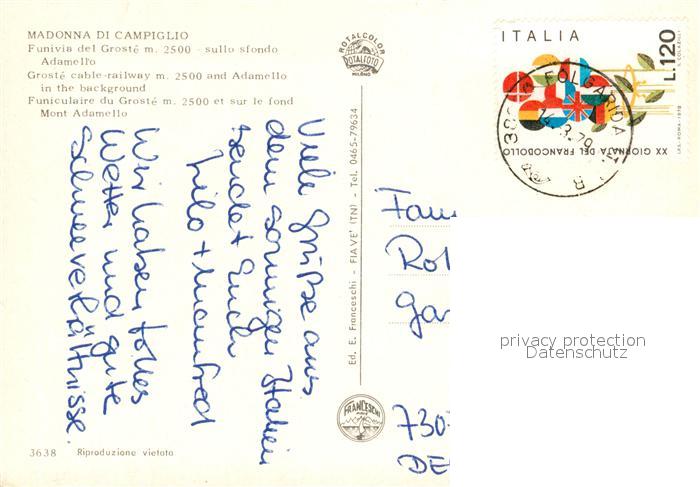 MADONNA DI CAMPIGLIO
Funivia del Grosté m. 2500 - sullo sfondo
Adamello
Grosté cable-railway m. 2500 and Adamello
in the background
Funiculaire du Grosté m. 2500 et sur le fond
Mont Adamello
Viele Grüße aus
dem sonnigen Italien
sendet Euch
Lilo + Manfred
Wir haben tolles
Wetter und gute
Schneeverhältnisse.
3638 Riproduzione vietata
ROTALCOLOR
ROTALFOTO
MILANO
Ed. E. Franceschi - FIAVE' (TN) - Tel. 0465-79634
FRANCESCHI
ITALIA
L.120
XX GIORNATA DEL FRANCOBOLLO
I.P.S.-ROMA-1978
FOLGARIDA
Fam
Rol
Gar
730
DE
privacy protection
Datenschutz